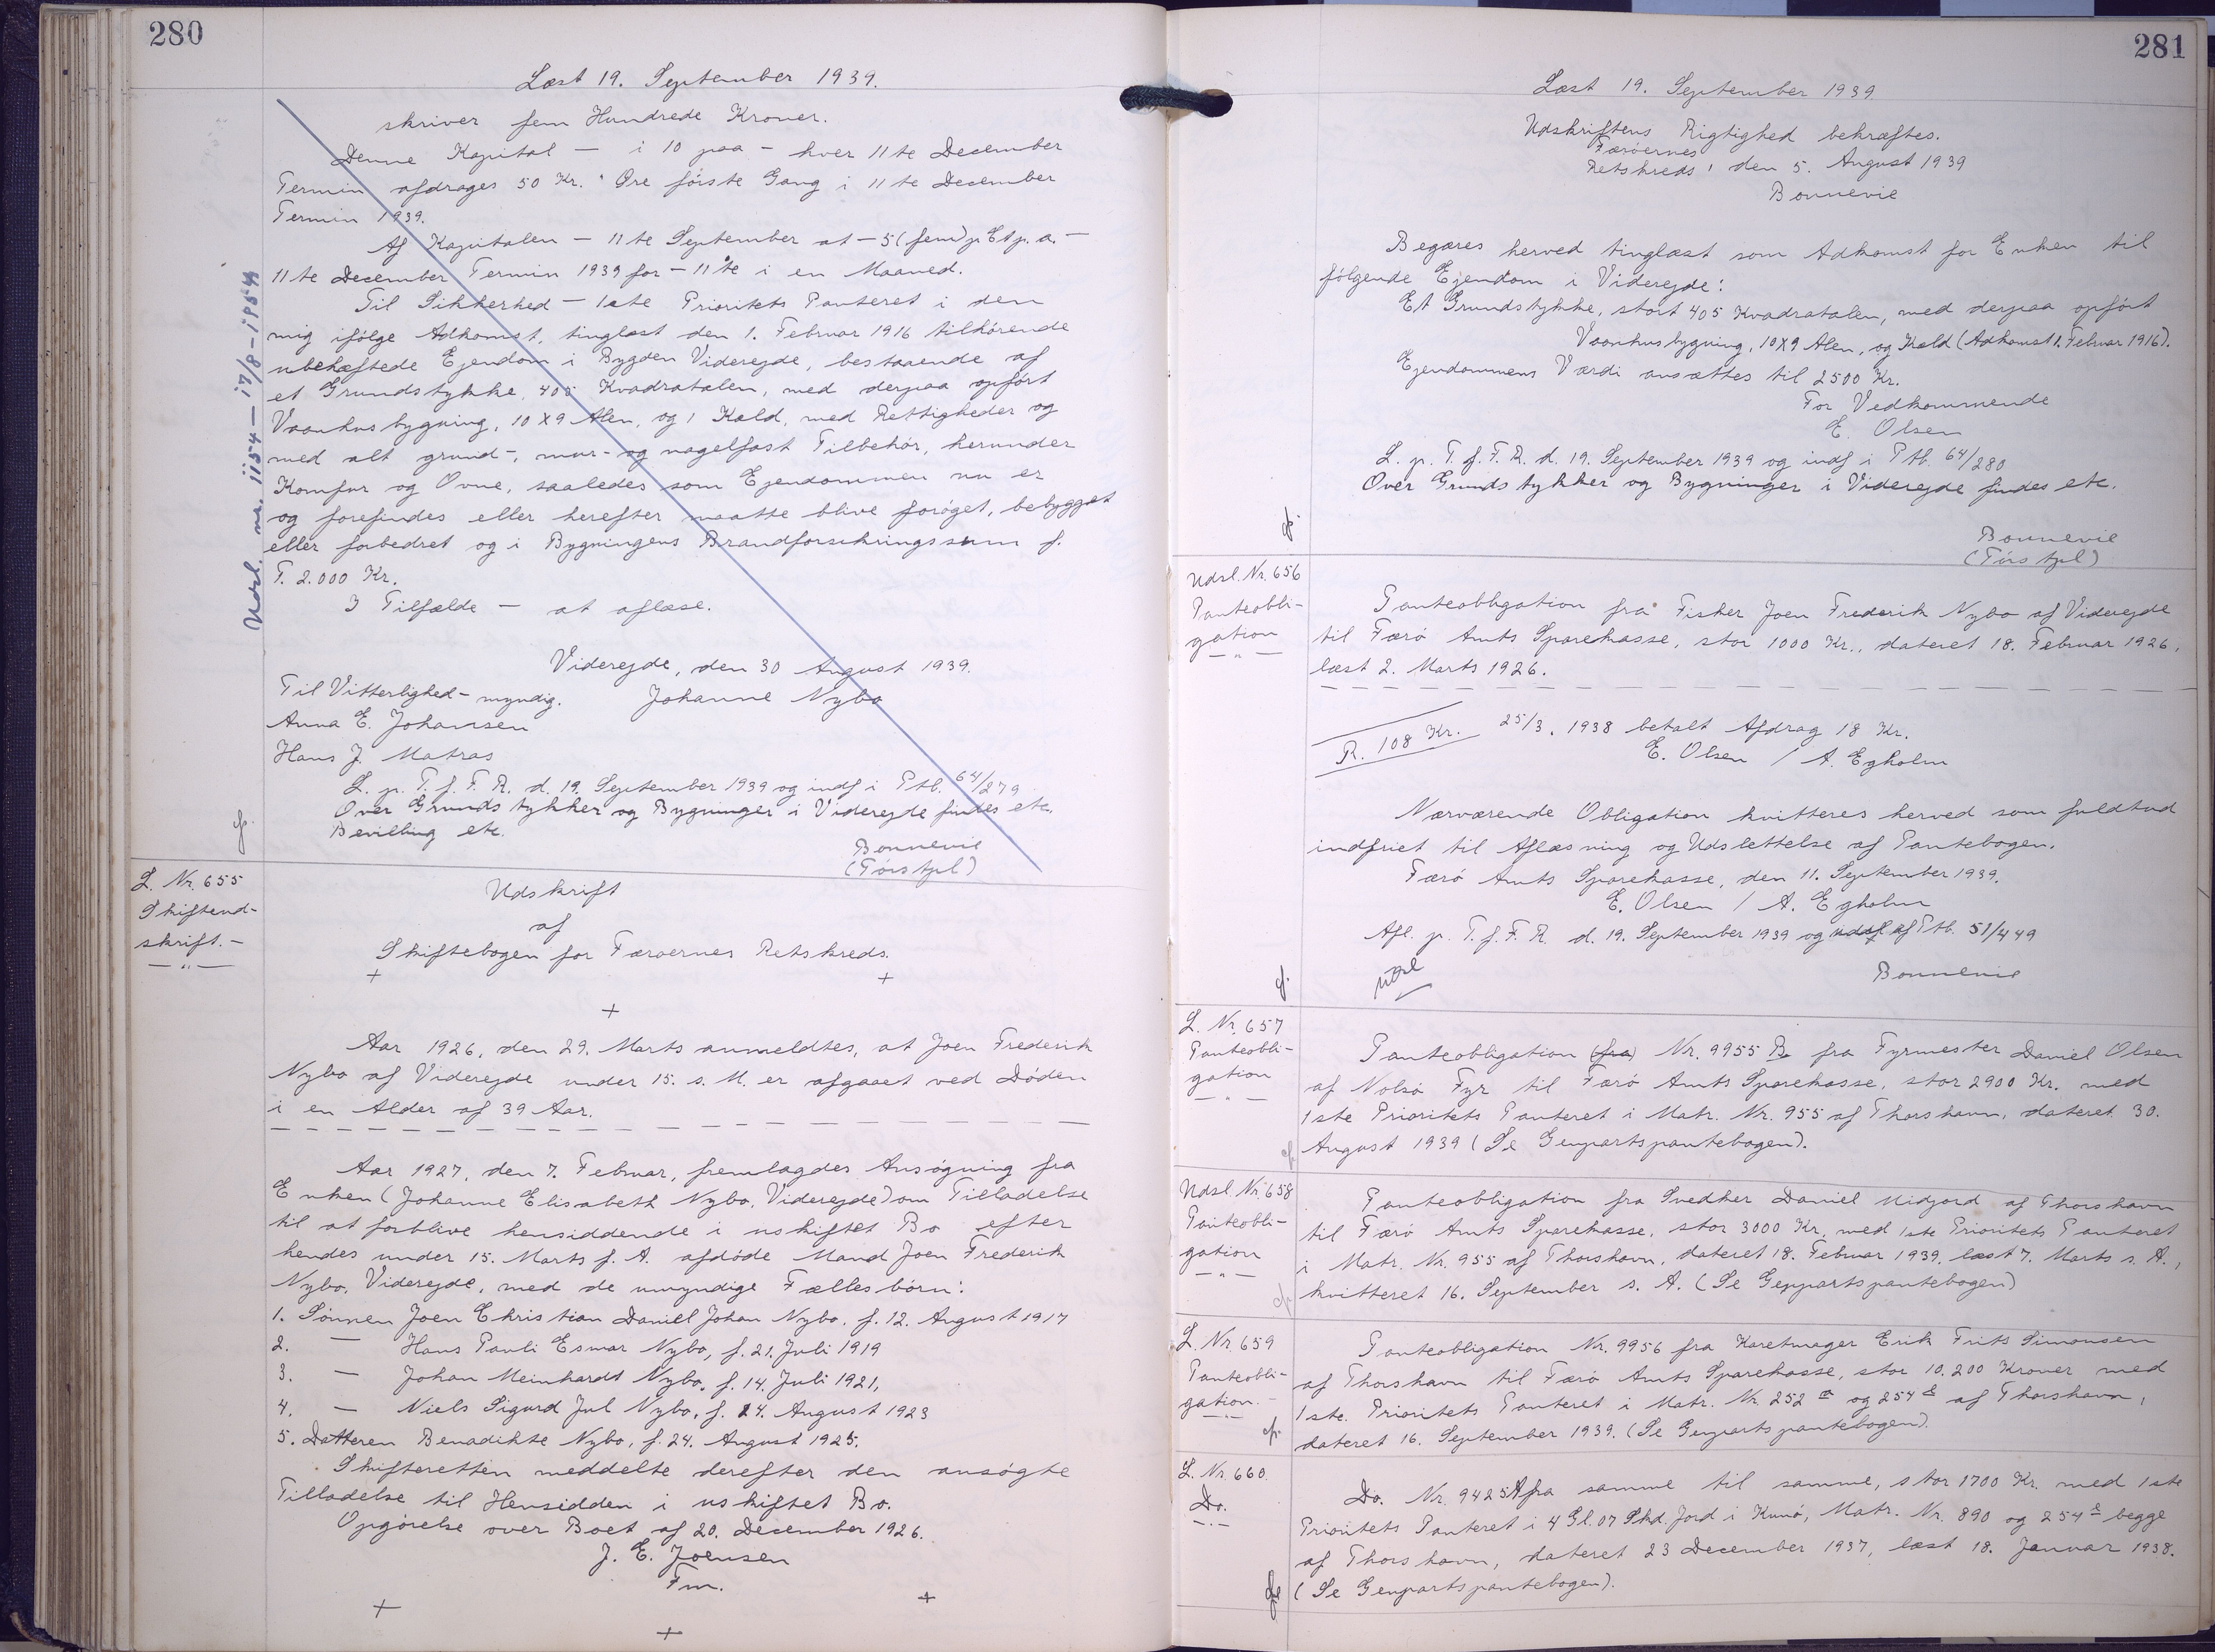 280
Læst 19. September 1939.
skriver fem Hundrede Kroner.
Denne Kapital — i 10 paa — hver 11te December
Termin afdrages 50 Kr. " Øre første Gang i 11te December
Termin 1939.
Af Kapitalen — 11te September at — 5 (fem) p Ct p. a. —
11te December Termin 1939 for — 11te i en Maaned.
Til Sikkerhed — 1ste Prioritets Panteret i den
mig ifølge Adkomst, tinglæst den 1. Februar 1916 tilhørende
ubehæftede Ejendom i Bygden Viderejde, bestaaende af
et Grundstykke, 405 Kvadratalen, med derpaa opført
Vaanhusbygning, 10 X 9 Alen, og 1 Kæld, med Rettigheder og
med alt grund-, mur- og nagelfast Tilbehør, herunder
Komfur og Ovne, saaledes som Ejendommen nu er
og forefindes eller herefter maatte blive forøget, bebygget
eller forbedret og i Bygningens Brandforsikringssum f.
T. 2.000 Kr.
I Tilfælde — at aflæse.
Viderejde, den 30 August 1939.
Til Vitterlighed — myndig. Johanne Nybo
Anna E. Johansen
Hans J. Matras
L. p. T. f. F. R. d. 19. September 1939 og indf i Ptb. 64/279
Over Grundstykker og Bygninger i Viderejde findes etc.
Bevilling etc.
Bonnevie
(Tórstpl)
Udsl. nr. 1154 — 17/8 - 1954
L. Nr. 655
Skifteud-
skrift. —
— " —
Udskrift
af
Skiftebogen for Færøernes Retskreds.
+ +
+
Aar 1926, den 29. Marts anmeldtes, at Joen Frederik
Nybo af Viderejde under 15. s. M. er afgaaet ved Døden
i en Alder af 39 Aar.
Aar 1927, den 7. Februar, fremlagdes Ansøgning fra
Enken (Johanne Elisabeth Nybo, Viderejde) om Tilladelse
til at forblive hensiddende i uskiftet Bo efter
hendes under 15. Marts f. A. afdøde Mand Joen Frederik
Nybo, Viderejde, med de umyndige Fællesbörn:
1. Sönnen Joen Christian Daniel Johan Nybo, f. 12. August 1917
2. — Hans Pauli Esmar Nybo, f. 21. Juli 1919
3. — Johan Meinhardt Nybo, f. 14. Juli 1921,
4. — Niels Sigurd Jul Nybo, f. 24. August 1923
5. Datteren Benadikte Nybo, f. 24. August 1925.
Skifteretten meddelte derefter den ansøgte
Tilladelse til Hensidden i uskiftet Bo.
Opgørelse over Boet af 20. December 1926.
J. E. Joensen
Fm.
+ +
+
281
Læst 19. September 1939
Udskriftens Rigtighed bekræftes.
Færøernes
Retskreds, den 5. August 1939
Bonnevie
Begæres herved tinglæst som Adkomst for Enken til
følgende Ejendom i Viderejde:
Et Grundstykke, stort 405 Kvadratalen, med derpaa opført
Vaanhusbygning, 10X9 Alen, og Kæld (Adkomst 1. Februar 1916).
Ejendommens Værdi ansættes til 2500 Kr.
For Vedkommende
E. Olsen
L. p. T. f. F. R. d. 19. September 1939 og indf i Ptb. 64/280
Over Grundstykker og Bygninger i Viderejde findes etc.
Bonnevie
(Tórstpl)
Udsl. Nr. 656
Panteobli-
gation
— " —
Panteobligation fra Fisker Joen Frederik Nybo af Viderejde
til Færø Amts Sparekasse, stor 1000 Kr., dateret 18. Februar 1926,
læst 2. Marts 1926.
R. 108 Kr. 25/3. 1938 betalt Afdrag 18 Kr.
E. Olsen / A. Egholm
Nærværende Obligation kvitteres herved som fuldtud
indfriet til Aflæsning og Udslettelse af Pantebogen.
Færø Amts Sparekasse, den 11. September 1939.
E. Olsen / A. Egholm
Afl. p. T. f. F. R. d. 19. September 1939 og udsl. af Ptb. 51/449
Bonnevie
L. Nr. 657
Panteobli-
gation
— " —
Panteobligation (fra) Nr. 9955 B. fra Fyrmester Daniel Olsen
af Nolsø Fyr til Færø Amts Sparekasse, stor 2900 Kr. med
1ste Prioritets Panteret i Matr. Nr. 955 af Thorshavn, dateret 30.
August 1939 (Se Genpartspantebogen).
Udsl. Nr. 658
Panteobli-
gation
— " —
Panteobligation fra Snedker Daniel Midjord af Thorshavn
til Færø Amts Sparekasse, stor 3000 Kr, med 1ste Prioritets Panteret
i Matr. Nr. 955 af Thorshavn, dateret 18. Februar 1939, læst 7. Marts s. A.,
kvitteret 16. September s. A. (Se Genpartspantebogen)
L. Nr. 659
Panteobli-
gation.
— " —
Panteobligation Nr. 9956 fra Karetmager Erik Frits Simonsen
af Thorshavn til Færø Amts Sparekasse, stor 10.200 Kroner med
1ste. Prioritets Panteret i Matr. Nr. 252 a og 254 e af Thorshavn,
dateret 16. September 1939. (Se Genpartspantebogen).
L. Nr. 660.
Do.
— " —
Do. Nr. 9425 A fra samme til samme, stor 1700 Kr. med 1ste
Prioritets Panteret i 4 Gl. 07 Skd. Jord i Kunø, Matr. Nr. 890 og 254 e begge
af Thorshavn, dateret 23 December 1937, læst 18. Januar 1938.
(Se Genpartspantebogen).